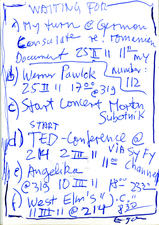 WAITING FOR
a) My turn @ German
Consulate re: Romanian
Document 25 II 11 11°° my
Number:
b) Werner Pawlok 112
25 II 11 17°° @ 319
c) Start Concert Morton
Subotnik
START
d) TED-Conference @
214 2 III 11 VIA SyFy
11°° Channel
e) Angelika
@ 319 10 III 11
f) West Elm's "J.C."
11 III 11 @ 214 8